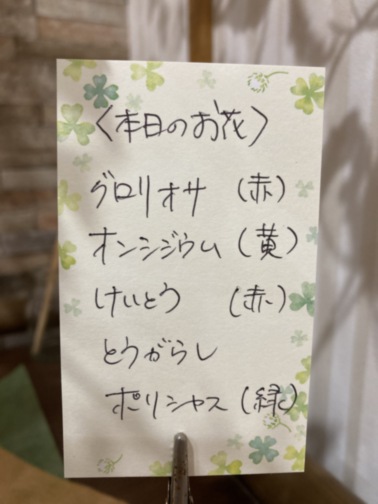 〈本日のお花〉
グロリオサ (赤)
オンシジウム (黄)
けいとう (赤)
とうがらし
ポリシャス (緑)